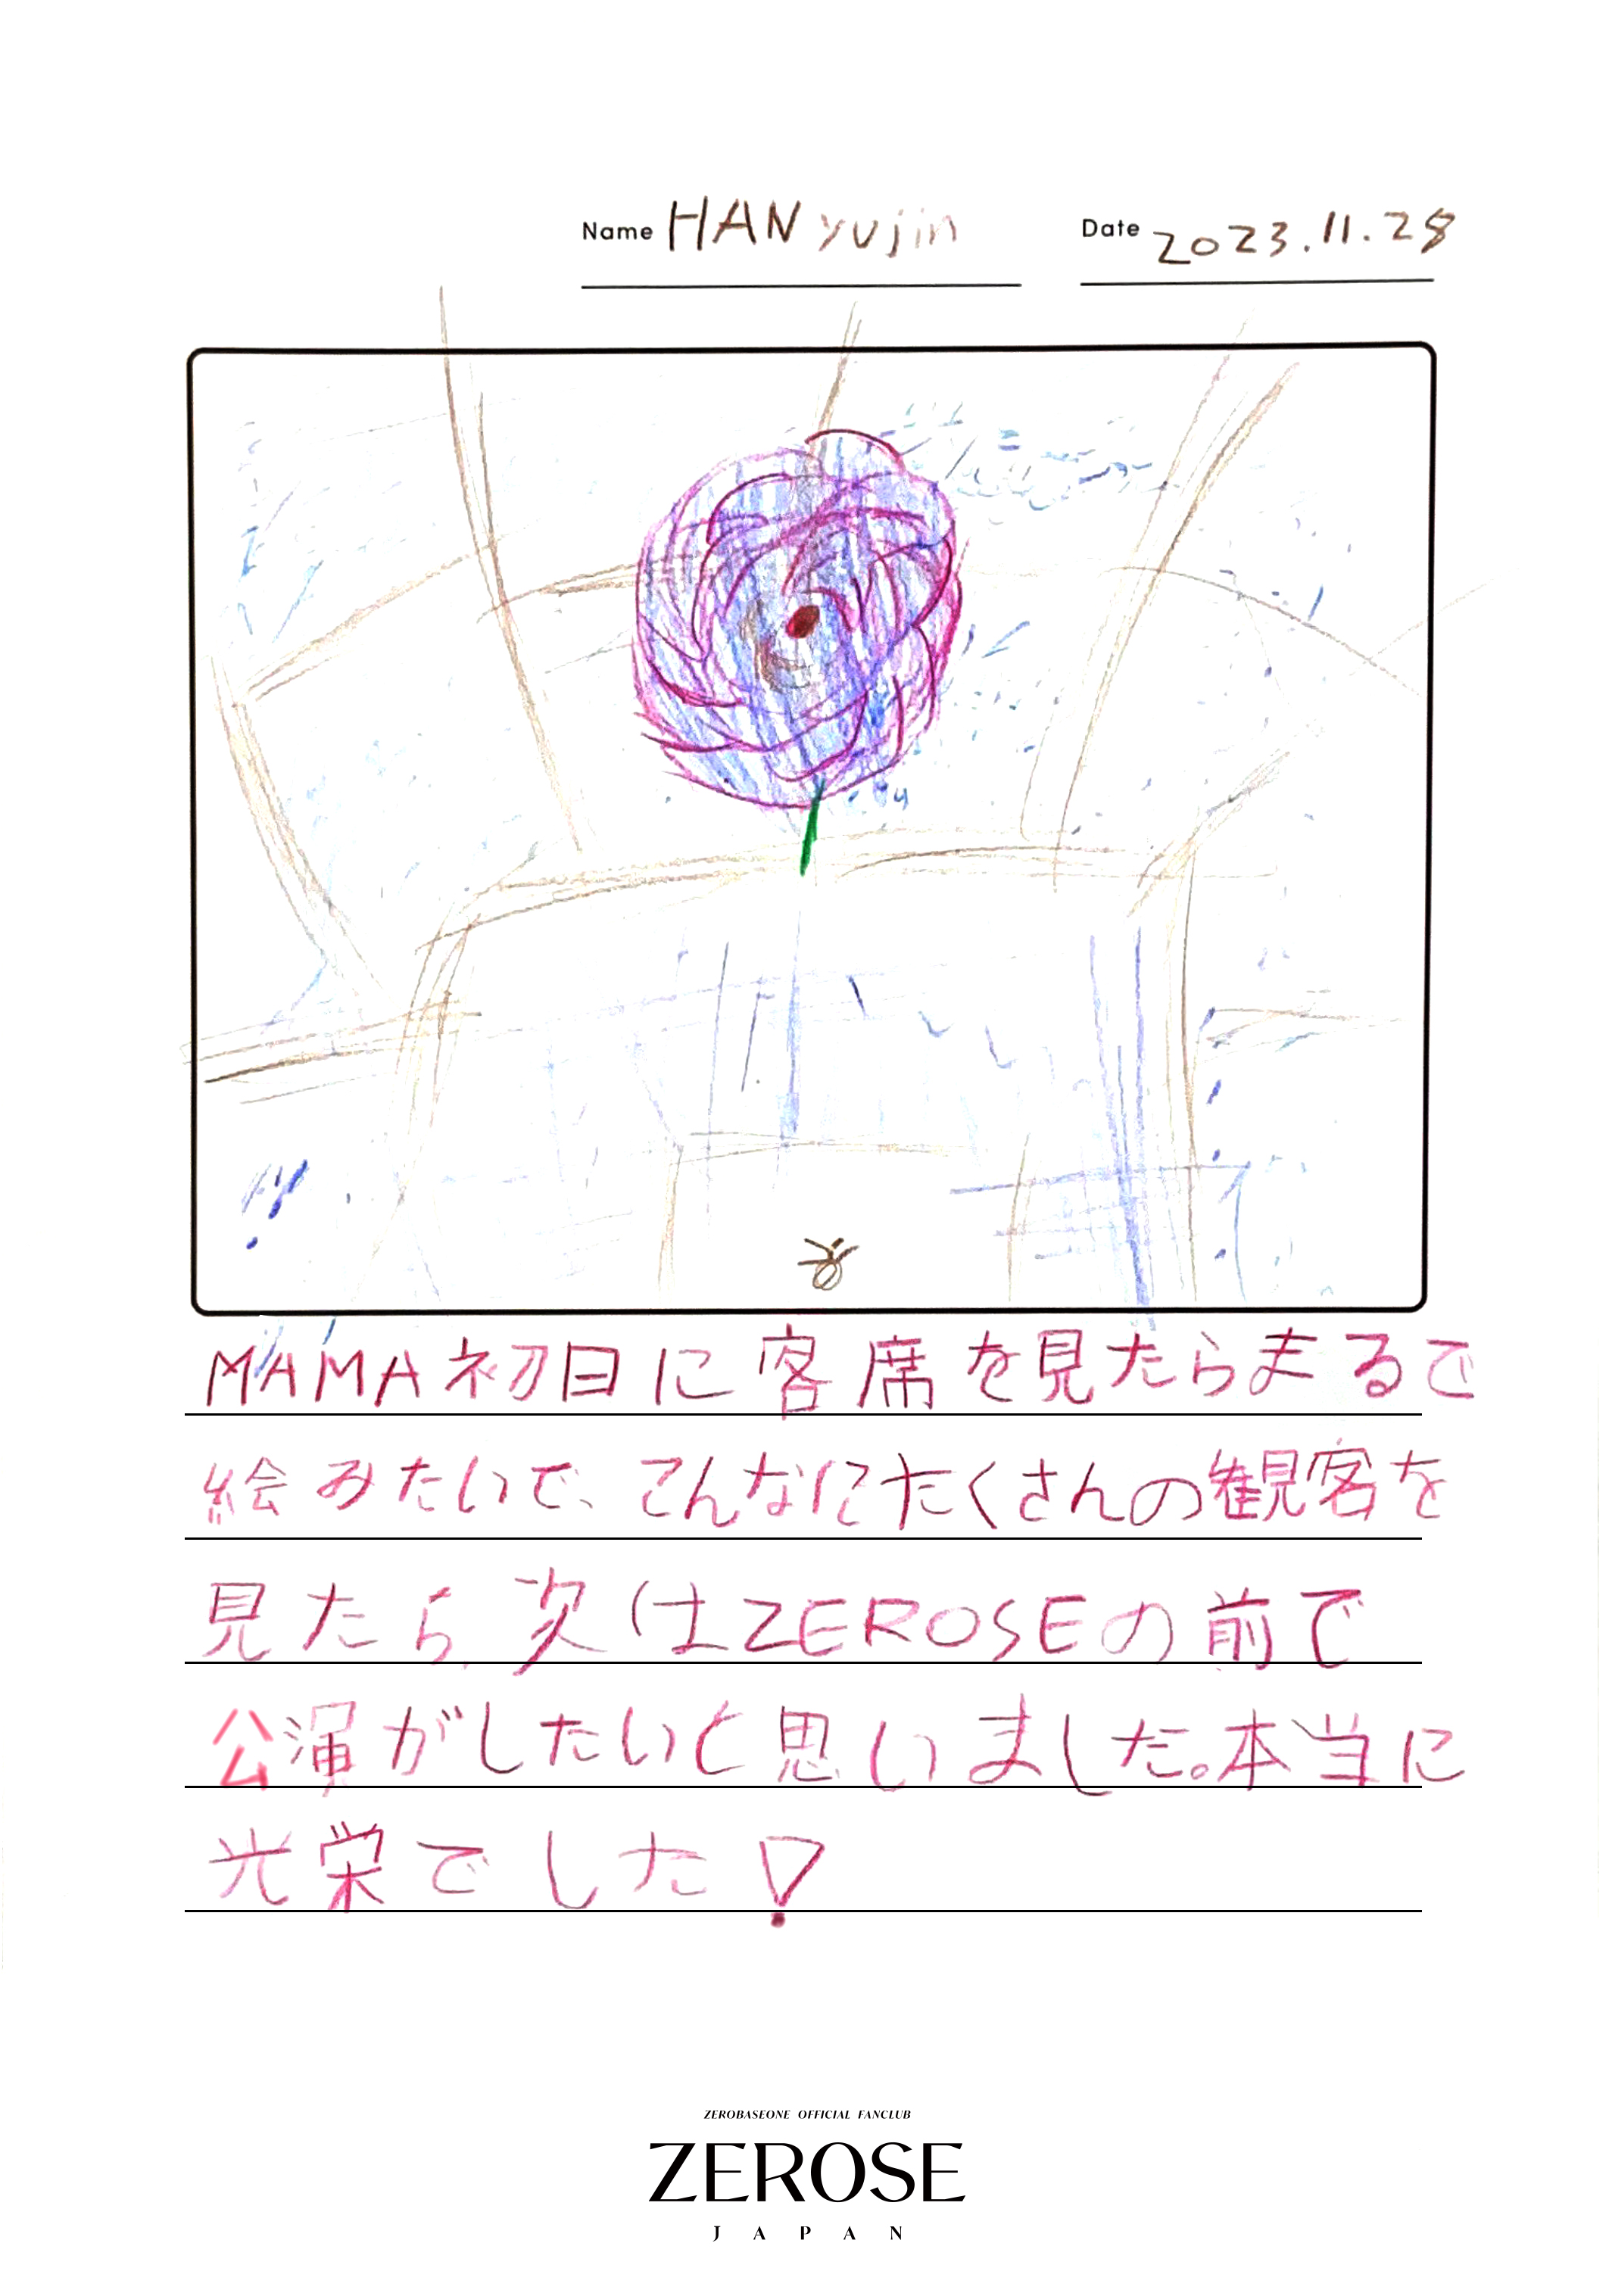 Name HAN yujin Date 2023.11.28
MAMA初日に客席を見たらまるで
絵みたいで、こんなにたくさんの観客を
見たら、次はZEROSEの前で
公演がしたいと思いました。本当に
光栄でした!
ZEROBASEONE OFFICIAL FANCLUB
ZEROSE
JAPAN